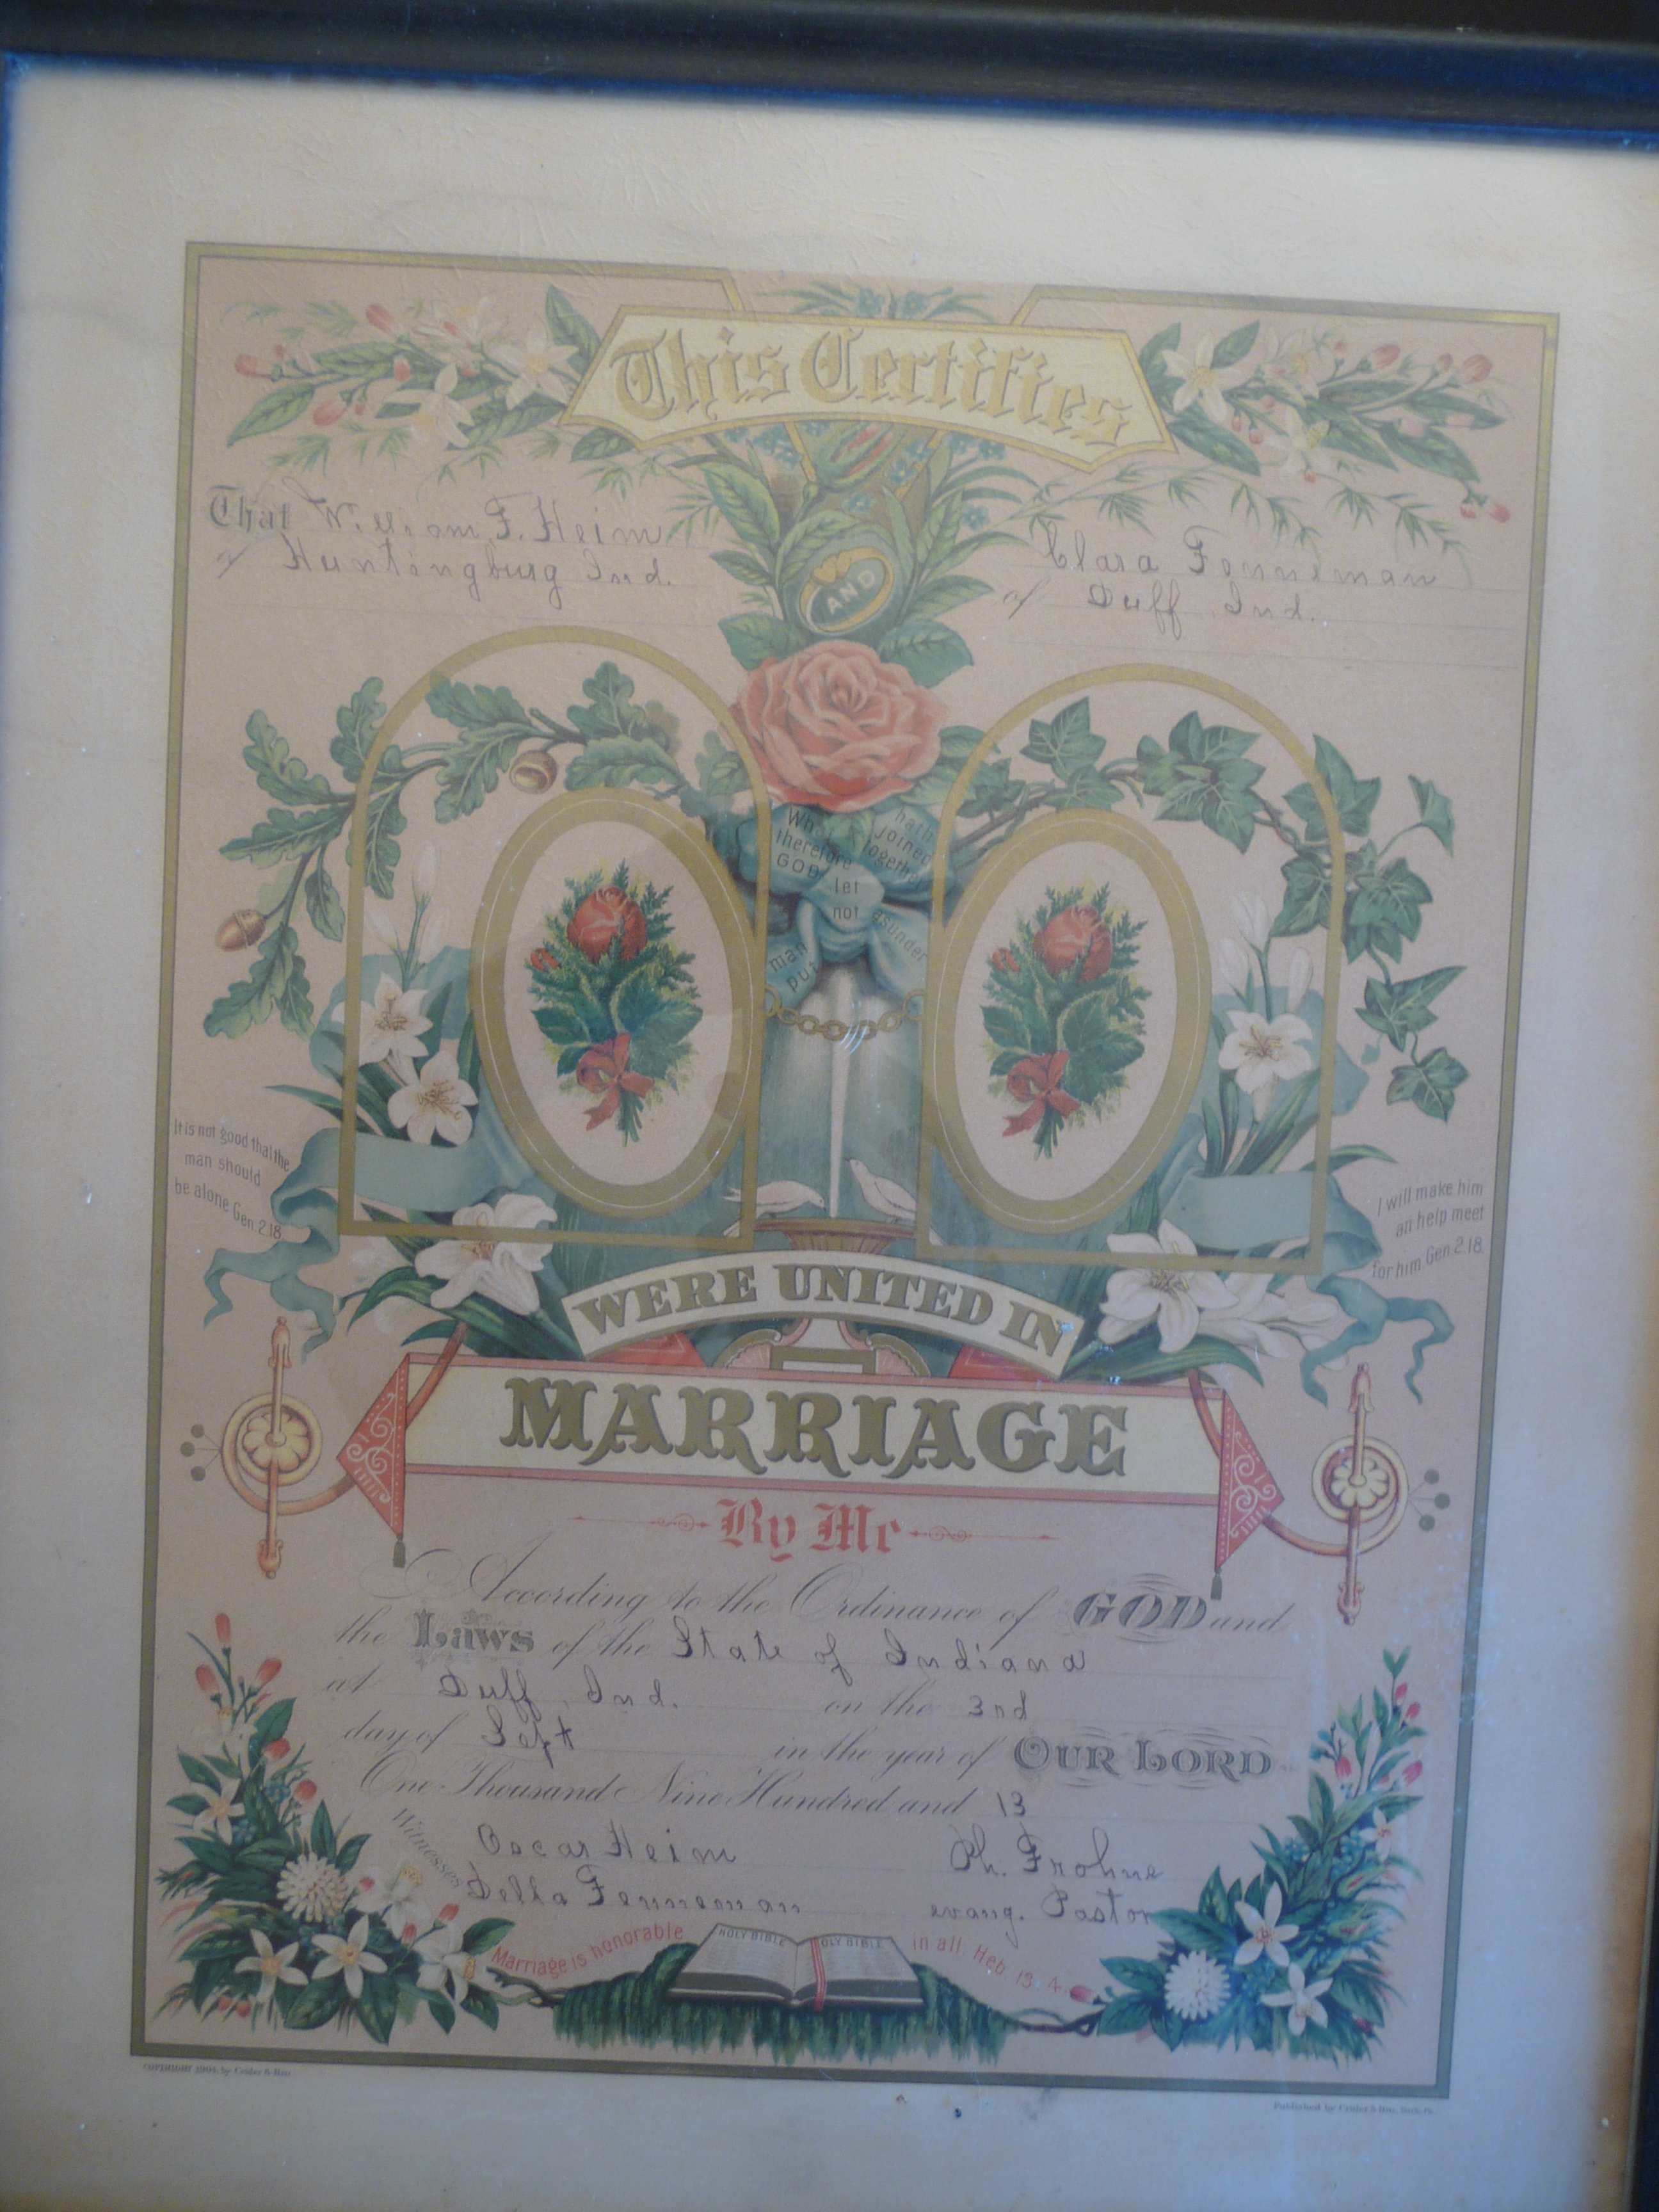 This Certifies
That William F. Heim
of Huntingburg Ind.
AND
Clara Fenneman
of Duff, Ind.
What therefore GOD hath joined together let not man put asunder
It is not good that the
man should
be alone Gen. 2.18.
I will make him
an help meet
for him. Gen. 2.18.
WERE UNITED IN
MARRIAGE
By Me
According to the Ordinance of GOD and
the Laws of the State of Indiana
at Duff, Ind. on the 3rd
day of Sept in the year of OUR LORD
One Thousand Nine Hundred and 13
Witnesses
Oscar Heim
Della Fenneman
Ph. Frohne
evang. Pastor
Marriage is honorable in all Heb. 13. 4.
HOLY BIBLE HOLY BIBLE
COPYRIGHT by & Bro.
Published by & Bro. York, Pa.